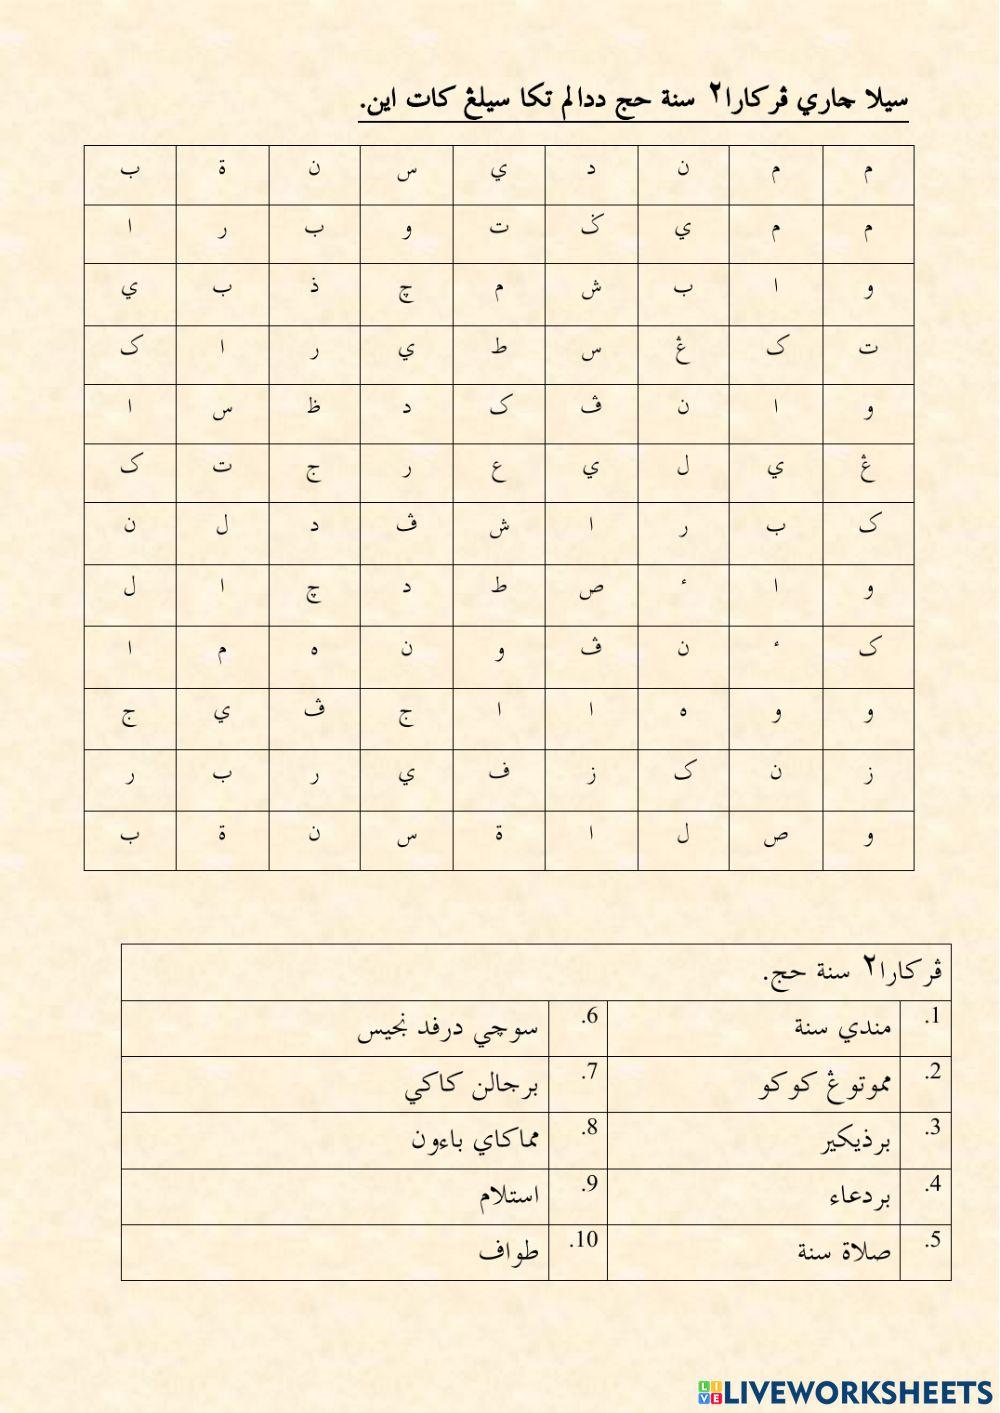 سيلا چاري ڤركارا٢ سنة حج ددالم تكا سيلڠ كات اين.
م م ن د ي س ن ة ب
م م ي ݢ ت و ب ر ا
و ا ب ش م چ ذ ب ي
ت ک ڠ س ط ي ر ا ک
و ا ن ڤ ک د ظ س ا
ڠ ي ل ي ع ر ج ت ک
ک ب ر ا ش ڤ د ل ن
و ا ء ص ط د چ ا ل
ک ء ن ڤ و ن ه م ا
و و ه ا ا ج ڤ ي ج
ز ن ک ز ف ي ر ب ر
و ص ل ا ة س ن ة ب
ڤركارا٢ سنة حج.
1. مندي سنة 6. سوچي درفد نجيس
2. مموتوڠ كوكو 7. برجالن كاكي
3. برذيكير 8. مماكاي باءون
4. بردعاء 9. استلام
5. صلاة سنة 10. طواف
LIVEWORKSHEETS